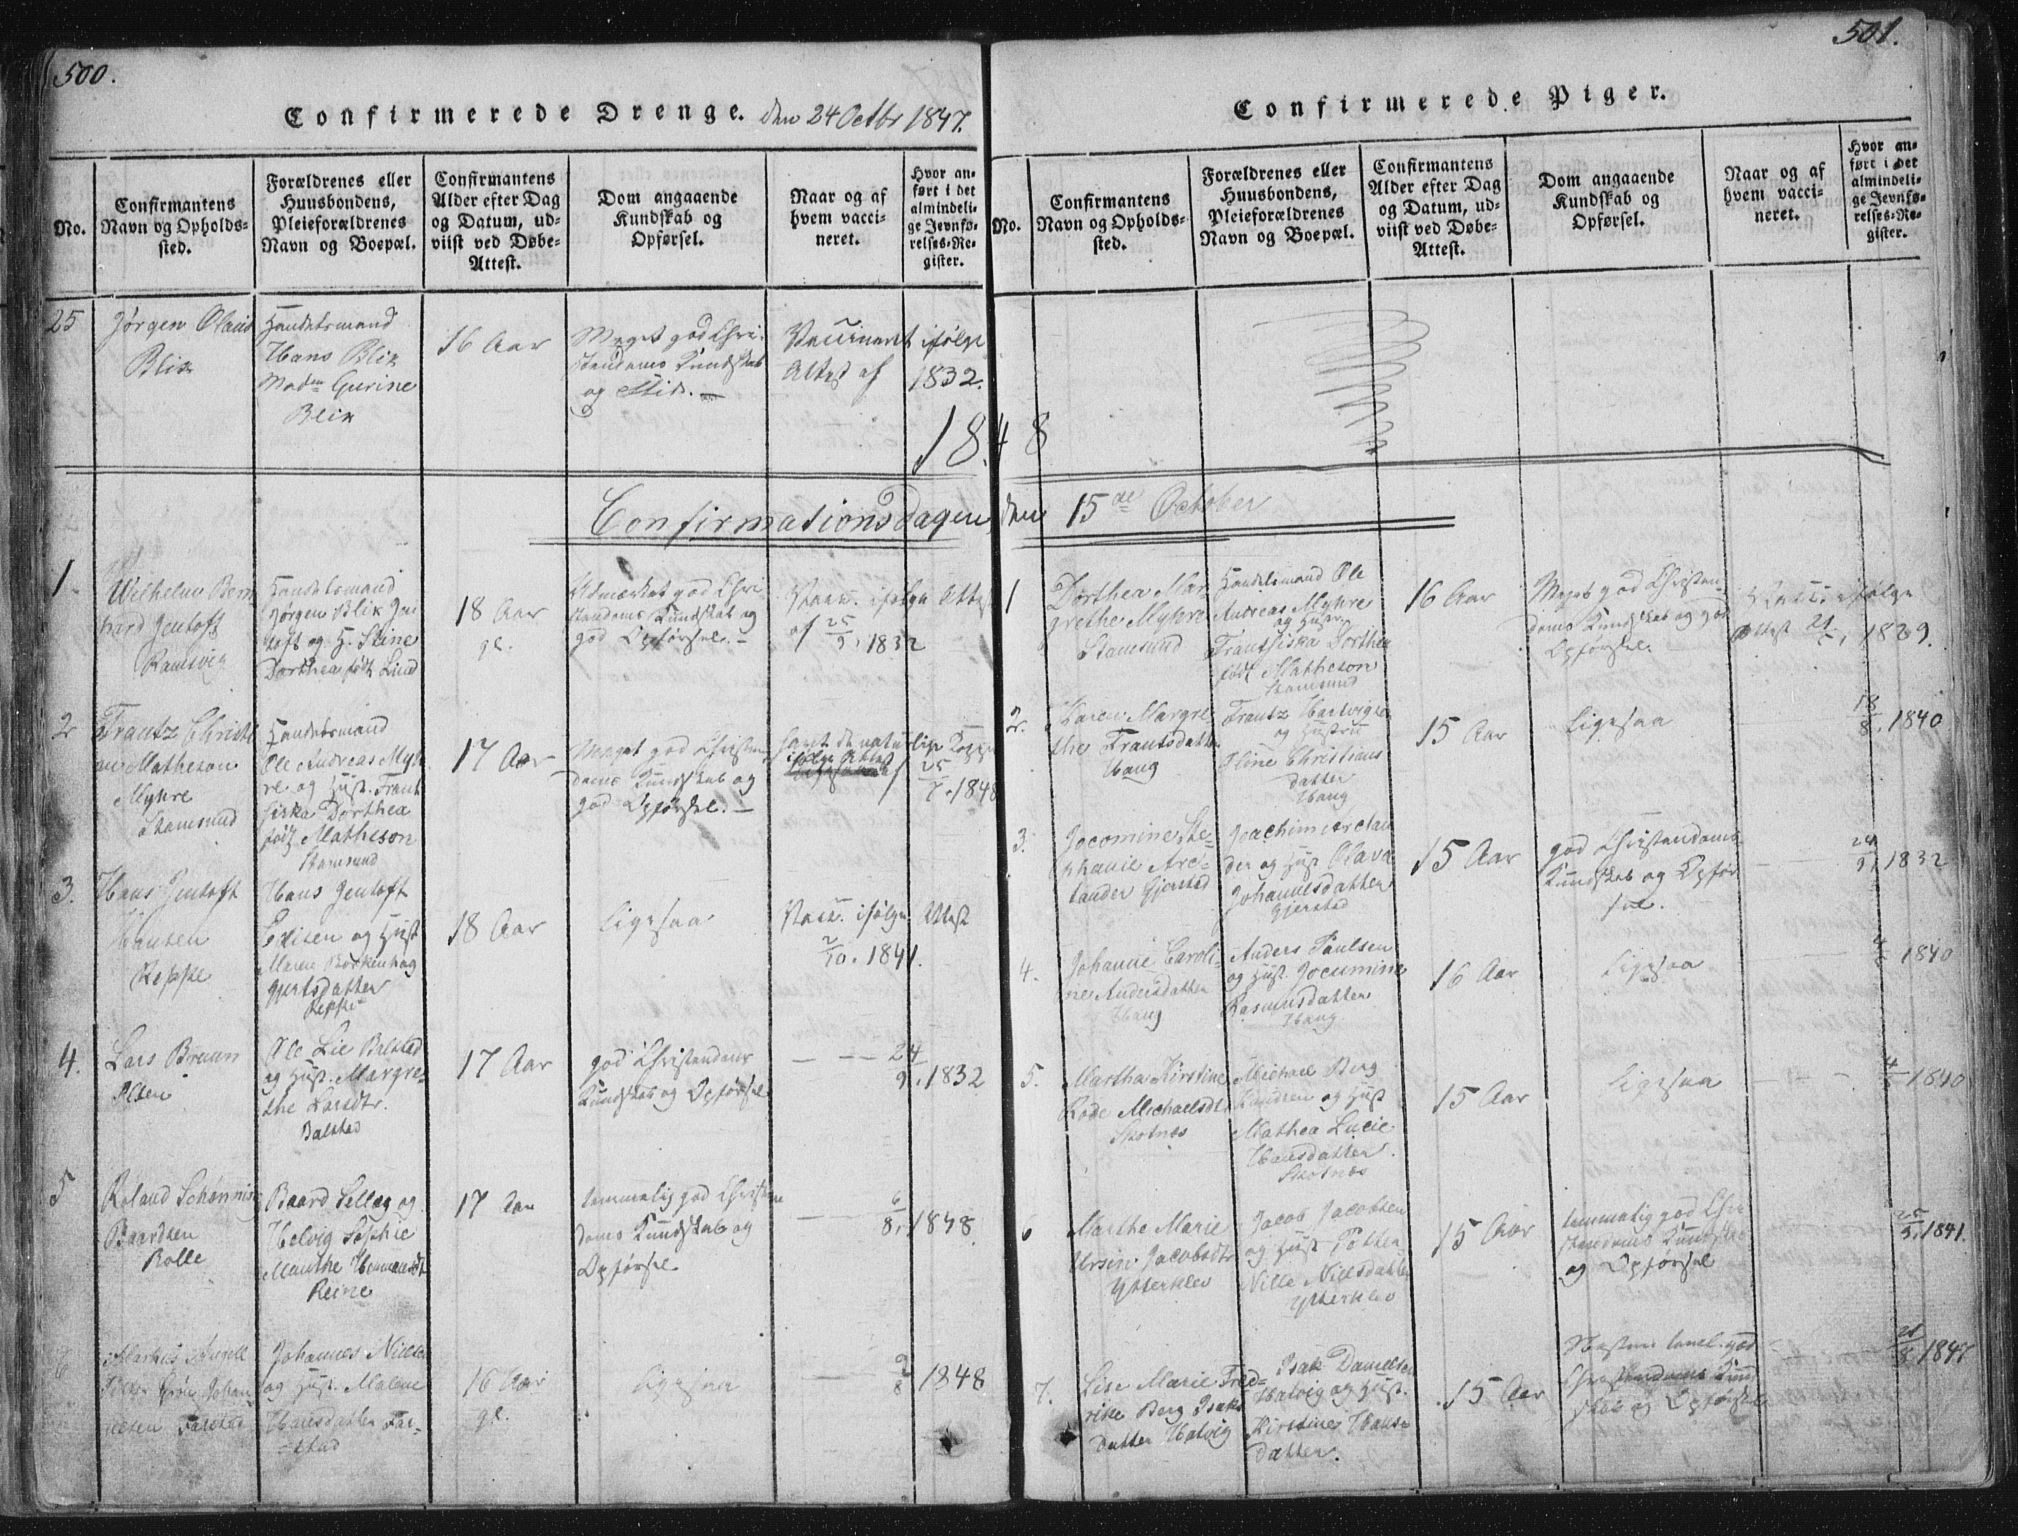 500.
Confirmerede Drenge. den 24 Octbr 1847.
No.
Confirmantens Navn og Opholds-sted.
Forældrenes eller Huusbondens, Pleieforældrenes Navn og Boepæl.
Confirmantens Alder efter Dag og Datum, ud-viist ved Døbe-Attest.
Dom angaaende Kundskab og Opførsel.
Naar og af hvem vacci-neret.
Hvor an-ført i det almindeli-ge Jevnfø-relses-Re-gister.
25
Jørgen Olaus
Blix
Handelsmand
Hans Blix
Madm Gurine
Blix
16 Aar
Meget god Chri-
stendoms Kundskab
og Flid. —
Vaccineret ifølge
Attest af 1832.
1848
Confirmationsdagen den 15de October
1.
Wilhelm Bern
hard Jentoft
Ramsvig
Handelsmand
Jørgen Blix Jen
toft og H. Stine
Dorthea født Lund
18 Aar
gl.
Udmærket god Chri
stendoms Kundskab og
god Opførsel. —
Vacc. ifølge Attest
af 25/9. 1832
2
Frantz Christi
an Matheson
Myhre
Stamsund
Handelsmand
Ole Andreas Myh
re og Hust. Frant
siska Dorthea
født Matheson
Stamsund
17 Aar
Meget god Christen
doms Kundskab og
god Opførsel. —
havt de naturlige Kopper
ifølge Attest
25/7. 1848
3.
Hans Jentoft
Hansen
Reppe
Hans Jentoft
Edisen og Hust
Maren Borkenhag
Gjertsdatter
Reppe
18 Aar
Ligesaa
Vacc. ifølge Attest
2/10. 1841.
4.
Lars Bruun
Olsen
Ole Lie Balstad
og Hust. Margre-
the Larsdtr.
Balstad
17 Aar
god Christendoms
Kundskab og Opførsel
— — — 24/9. 1832
5
Roland Schønning
Baardsen
Rolle
Baard Selleg og
Helvig Sophie
Manthe
Reine
17 Aar
temmelig god Christen
doms Kundskab og
Opførsel
— — — 6/8. 1848
6
Johan
nesen Farstad
Johannes Nielsen
og Hust. Malene
Hansdatter Far-
stad
16 Aar
gl.
Ligesaa
— — 9/8 1848
501.
Confirmerede Piger.
No.
Confirmantens Navn og Opholds-sted.
Forældrenes eller Huusbondens, Pleieforældrenes Navn og Boepæl.
Confirmantens Alder efter Dag og Datum, ud-viist ved Døbe-Attest.
Dom angaaende Kundskab og Opførsel.
Naar og af hvem vacci-neret.
Hvor an-ført i det almindeli-ge Jevnfø-relses-Re-gister.
1
Dorthea Mar
grethe Myhre
Stamsund
Handelsmand Ole
Andreas Myhre
og Hustr.
Frantsiska Dorthea
født Matheson
Stamsund
16 Aar
Meget god Christen-
doms Kundskab og god
Opførsel.
Vacc. ifølge
Attest 1829.
2.
Karen Margre
the Frantsdatter
Haug
Frantz Hartvigsen
og Hustru
Oline Christians
datter
Haug
15 Aar
Ligesaa
— 18/8. 1840
3.
Jocomine Ste-
phanie Arc-
tander Gjerstad
Joachim Arctan
der og Hust Olava
Johannesdatter
Gjerstad
15 Aar
god Christendoms
Kundskab og Opfør
sel.
24/9. 1832
4.
Johanne Caroli-
ne Andersdatter
Haug
Anders Paulsen
og Hust. Jocumine
Rasmusdatter
Haug
16 Aar
Ligesaa
1840
5.
Martha Kirstine
Rode Michaelsdtr
Skotnes
Michael Berg
Knudsen og Hust
Mathea Lucie
Hansdatter.
Skotnes
15 Aar
Ligesaa
1840
6
Marthe Marie
Ursin Jacobsdtr
Ytterklev
Jacob Jacobsen
og Hust Petter
Nille Nillsdatter
Ytterklev
15 Aar
temmelig god Chri
stendoms Kundskab
og Opførsel
25/9. 1841.
7.
Lise Marie Fred-
rikke Berg Isaks
datter Halvig
Isak Danielsen
Halvig og Hust.
Kirstine Hans
datter.
15 Aar
god
Christendoms Kund
skab og Opførsel
21/8 1847